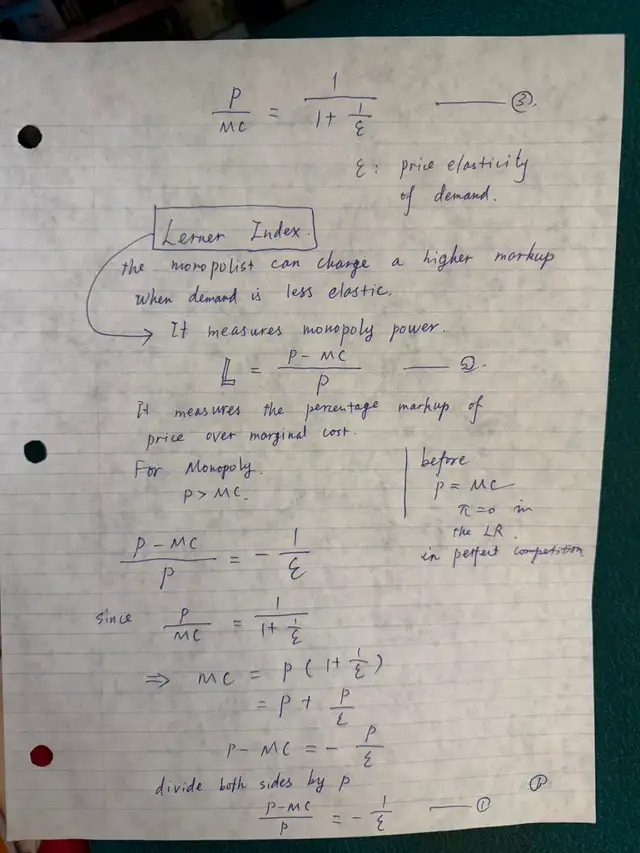 P/MC = 1/(1 + 1/ε) —— ③.
ε: price elasticity
of demand.
Lerner Index.
the monopolist can charge a higher markup
when demand is less elastic.
It measures monopoly power.
L = (P - MC)/P —— ②.
It measures the percentage markup of
price over marginal cost.
For Monopoly.
P > MC.
before
P = MC
π = 0 in
the LR.
in perfect competition
(P - MC)/P = - 1/ε
since P/MC = 1/(1 + 1/ε)
⇒ MC = P(1 + 1/ε)
= P + P/ε
P - MC = - P/ε
divide both sides by P
(P-MC)/P = - 1/ε —— ①
Ⓟ